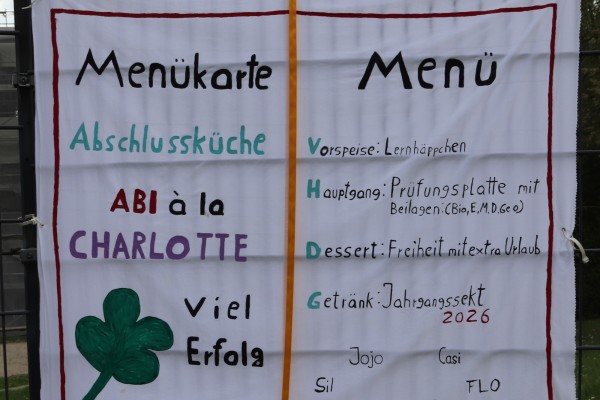 Menükarte
Abschlussküche
ABI à la
CHARLOTTE
Viel
Erfolg
Menü
Vorspeise: Lernhäppchen
Hauptgang: Prüfungsplatte mit
Beilagen: (Bio, E, M, D, Geo)
Dessert: Freiheit mit extra Urlaub
Getränk: Jahrgangssekt
2026
Jojo Casi
Sil FLO